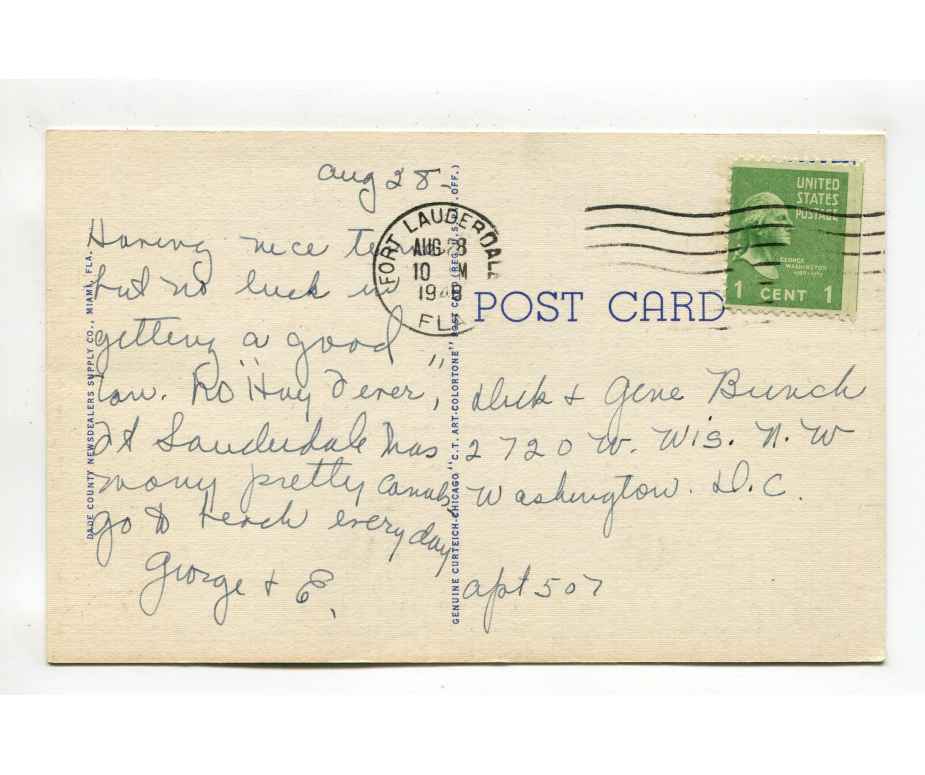 Aug 28 -
Having nice
but no luck in
getting a good
tan. No "Hay Fever",
Ft Lauderdale has
many pretty canals,
go to beach every day
George & E.
FORT LAUDERDALE
AUG 28
10 M
19
FLA
UNITED
STATES
POSTAGE
GEORGE
WASHINGTON
1 CENT 1
POST CARD
Dick & Gene Bunch
2720 W. Wis. N. W
Washington. D. C.
Apt 507
DADE COUNTY NEWSDEALERS SUPPLY CO., MIAMI, FLA.
GENUINE CURTEICH-CHICAGO "C.T. ART-COLORTONE" POST CARD (REG. U.S. PAT. OFF.)